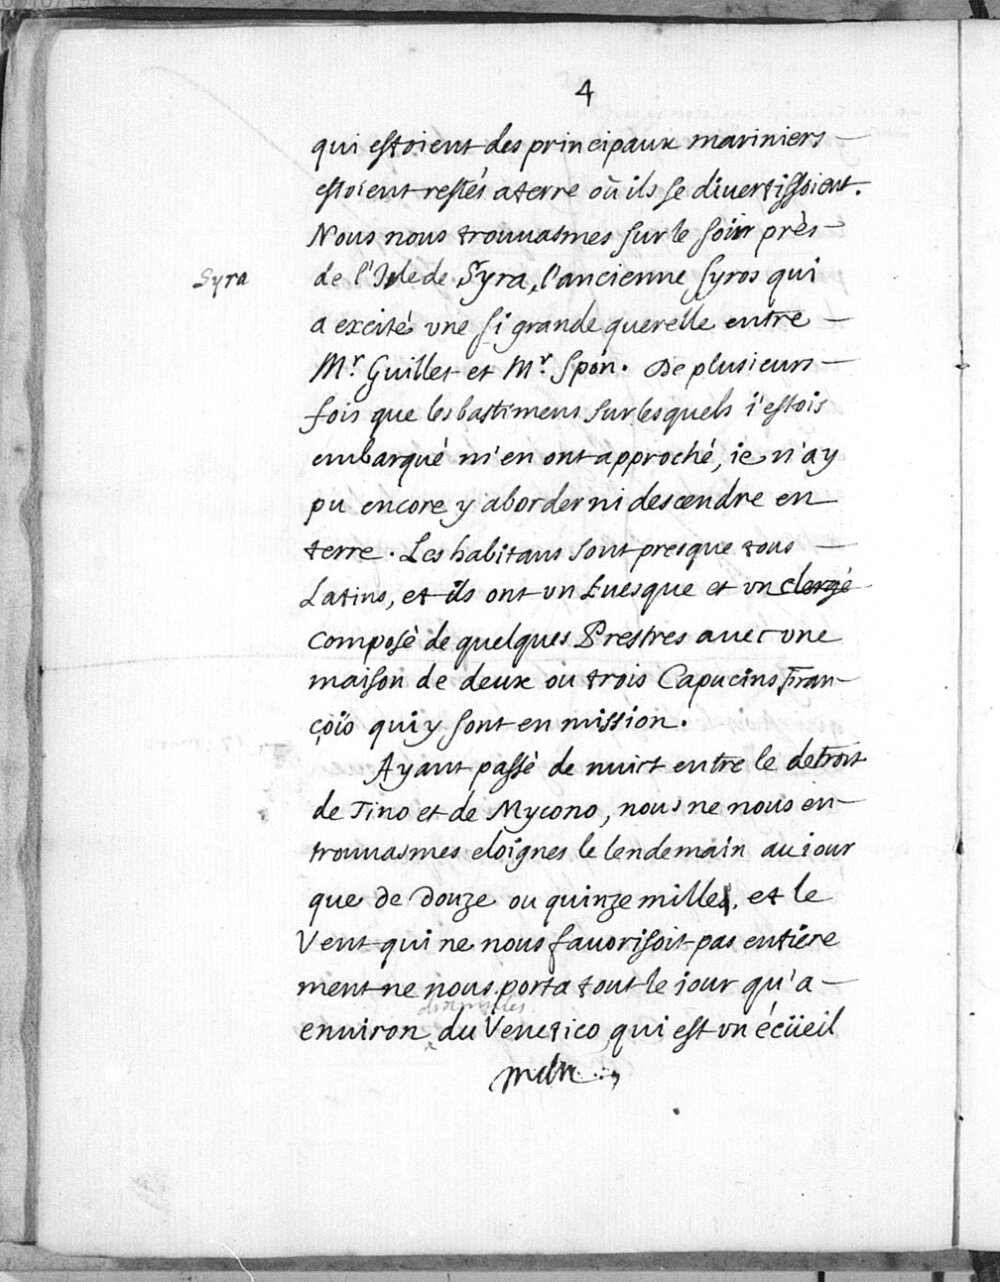 4
qui estoient des principaux mariniers
estoient restés a terre où ils se diuertissoient.
Nous nous trouuasmes sur le soir près
Syra
de l'Isle de Syra, l'ancienne Syros qui
a excité vne si grande querelle entre
Mr. Guillet et Mr. Spon. De plusieurs
fois que les bastimens sur lesquels i'estois
embarqué m'en ont approché, ie n'ay
pu encore y aborder ni descendre en
terre. Les habitans sont presque tous
Latins, et ils ont vn Euesque et vn clergé
composé de quelques Prestres auec vne
maison de deux ou trois Capucins Fran-
çois qui y sont en mission.
Ayant passé de nuict entre le detroit
de Tino et de Mycono, nous ne nous en-
trouuasmes eloignes le lendemain au iour
que de douze ou quinze mille, et le
Vent qui ne nous fauorisoit pas entiere
ment ne nous porta tout le iour qu'a
enuiron du Venetico qui est vn écüeil